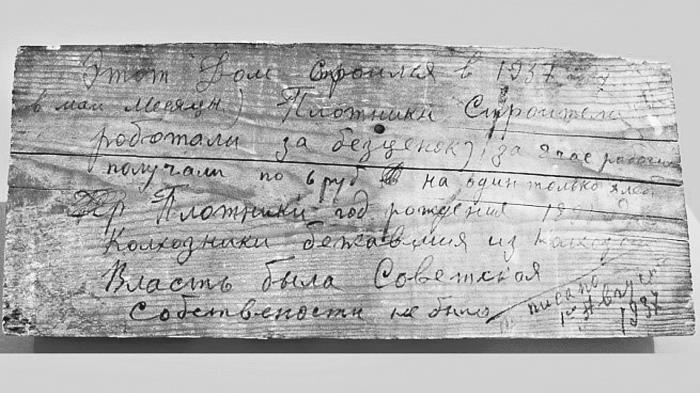 Этот Дом строился в 1937
в маи месяцы) Плотники Строители
работали за безценок) за 8 час работы
получали по 6 руб на один только хлеб
Плотники год рождения
Колхозники бежавшия из колхоза
Власть была Советская
Собствености не было
писано
1го Августа
1937